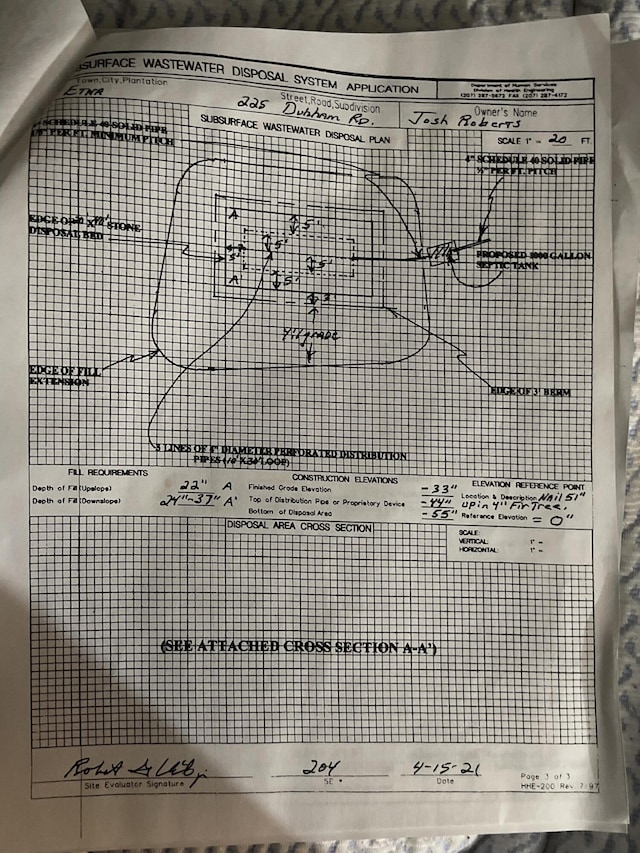 SURFACE WASTEWATER DISPOSAL SYSTEM APPLICATION
Department of Human Services
Division of Health Engineering
(207) 287-5672 FAX (207) 287-4172
Town, City, Plantation
ETNA
Street, Road, Subdivision
225 Dunham RD.
Owner's Name
Josh Roberts
SUBSURFACE WASTEWATER DISPOSAL PLAN
SCALE 1" = 20 FT.
SCHEDULE 40 SOLID PIPE
1/8" PER FT. MINIMUM PITCH
4" SCHEDULE 40 SOLID PIPE
PER FT. PITCH
A
5'
EDGE OF STONE
DISPOSAL BED
5'
5'
5'
PROPOSED 1000 GALLON
SEPTIC TANK
A'
5'
3'
grade
EDGE OF FILL
EXTENSION
EDGE OF 3' BERM
LINES OF 4" DIAMETER PERFORATED DISTRIBUTION
PIPES
FILL REQUIREMENTS
Depth of Fill (Upslope) 22" A
Depth of Fill (Downslope) 24"-37" A'
CONSTRUCTION ELEVATIONS
Finished Grade Elevation -33"
Top of Distribution Pipe or Proprietary Device -44"
Bottom of Disposal Area -55"
ELEVATION REFERENCE POINT
Location & Description Nail 51"
up in 4" Fir Tree.
Reference Elevation = 0"
DISPOSAL AREA CROSS SECTION
SCALE:
VERTICAL: 1" =
HORIZONTAL: 1" =
(SEE ATTACHED CROSS SECTION A-A')
204
4-15-21
Site Evaluator Signature
SE *
Date
Page 3 of 3
HHE-200 Rev. 7/97